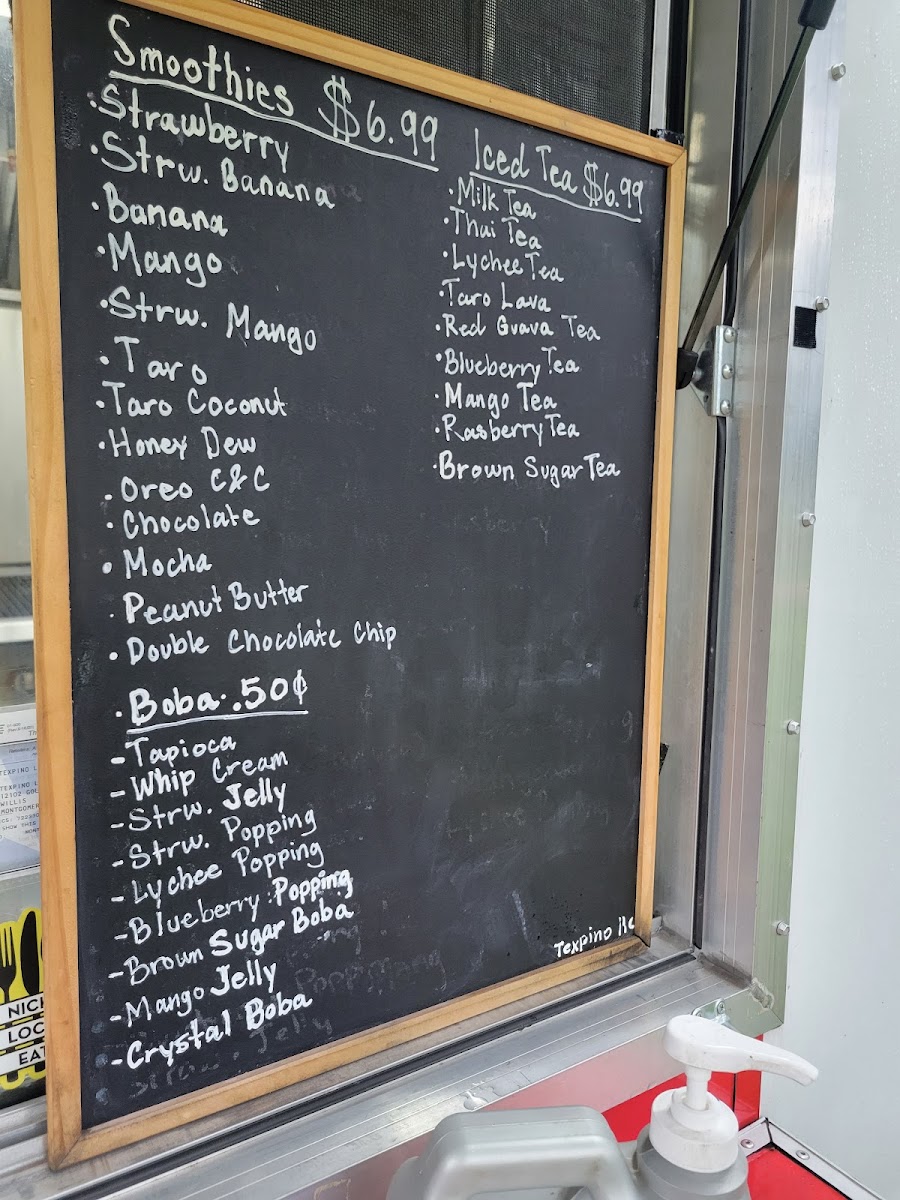 Smoothies $6.99
·Strawberry
·Strw. Banana
·Banana
·Mango
·Strw. Mango
·Taro
·Taro Coconut
·Honey Dew
·Oreo C&C
·Chocolate
·Mocha
·Peanut Butter
·Double Chocolate Chip
·Boba .50¢
-Tapioca
-Whip Cream
-Strw. Jelly
-Strw. Popping
-Lychee Popping
-Blueberry Popping
-Brown Sugar Boba
-Mango Jelly
-Crystal Boba
Iced Tea $6.99
·Milk Tea
·Thai Tea
·Lychee Tea
·Taro Lava
·Red Guava Tea
·Blueberry Tea
·Mango Tea
·Rasberry Tea
·Brown Sugar Tea
Texpino llc
TEXPINO L
TEXPINO L
WILLIS
MONTGOMER
SHOW THIS
NICK
LOC
EAT